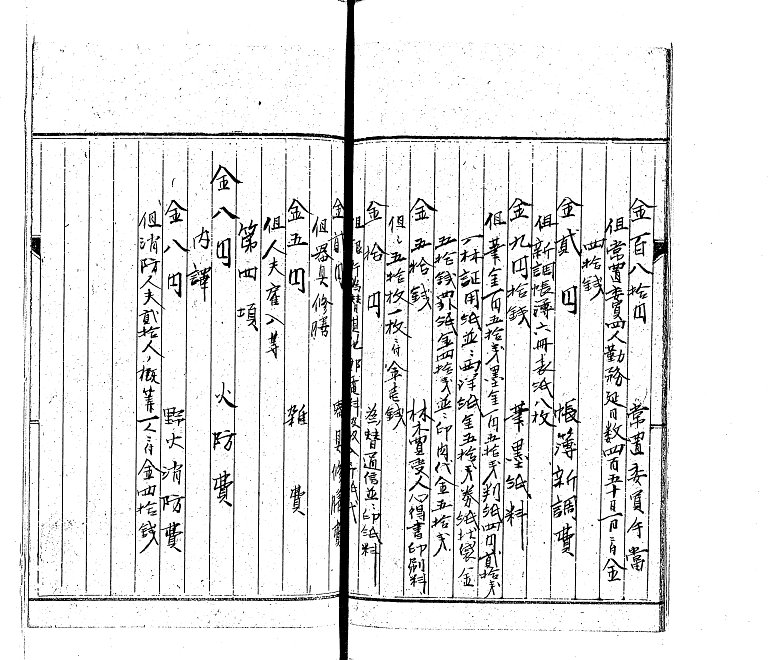 金百八拾円　常置委員手當
但常置委員四人勤務延日数四百五十日一日ニ付金
四拾錢
金貳円　帳簿新調費
但新調帳簿六冊表紙八枚
金九円拾錢　筆墨紙料
但筆金一円五拾錢墨金一円五拾錢判紙四円貳拾錢
林証用紙並ニ西洋紙金五拾錢券紙状袋金
五拾錢罫紙金四拾錢並ニ印肉代金五拾錢
金五拾錢　林木買受人心得書印刷料
但シ五拾枚一枚ニ付金壱錢
金拾円　為替通信並ニ印紙料
金貳円　器具修膳費
但器具修膳
金五円　雑費
但人夫雇入等
第四項
金八円　火防費
内譯
金八円　野火消防費
但消防人夫貳拾人ノ概算一人ニ付金四拾錢